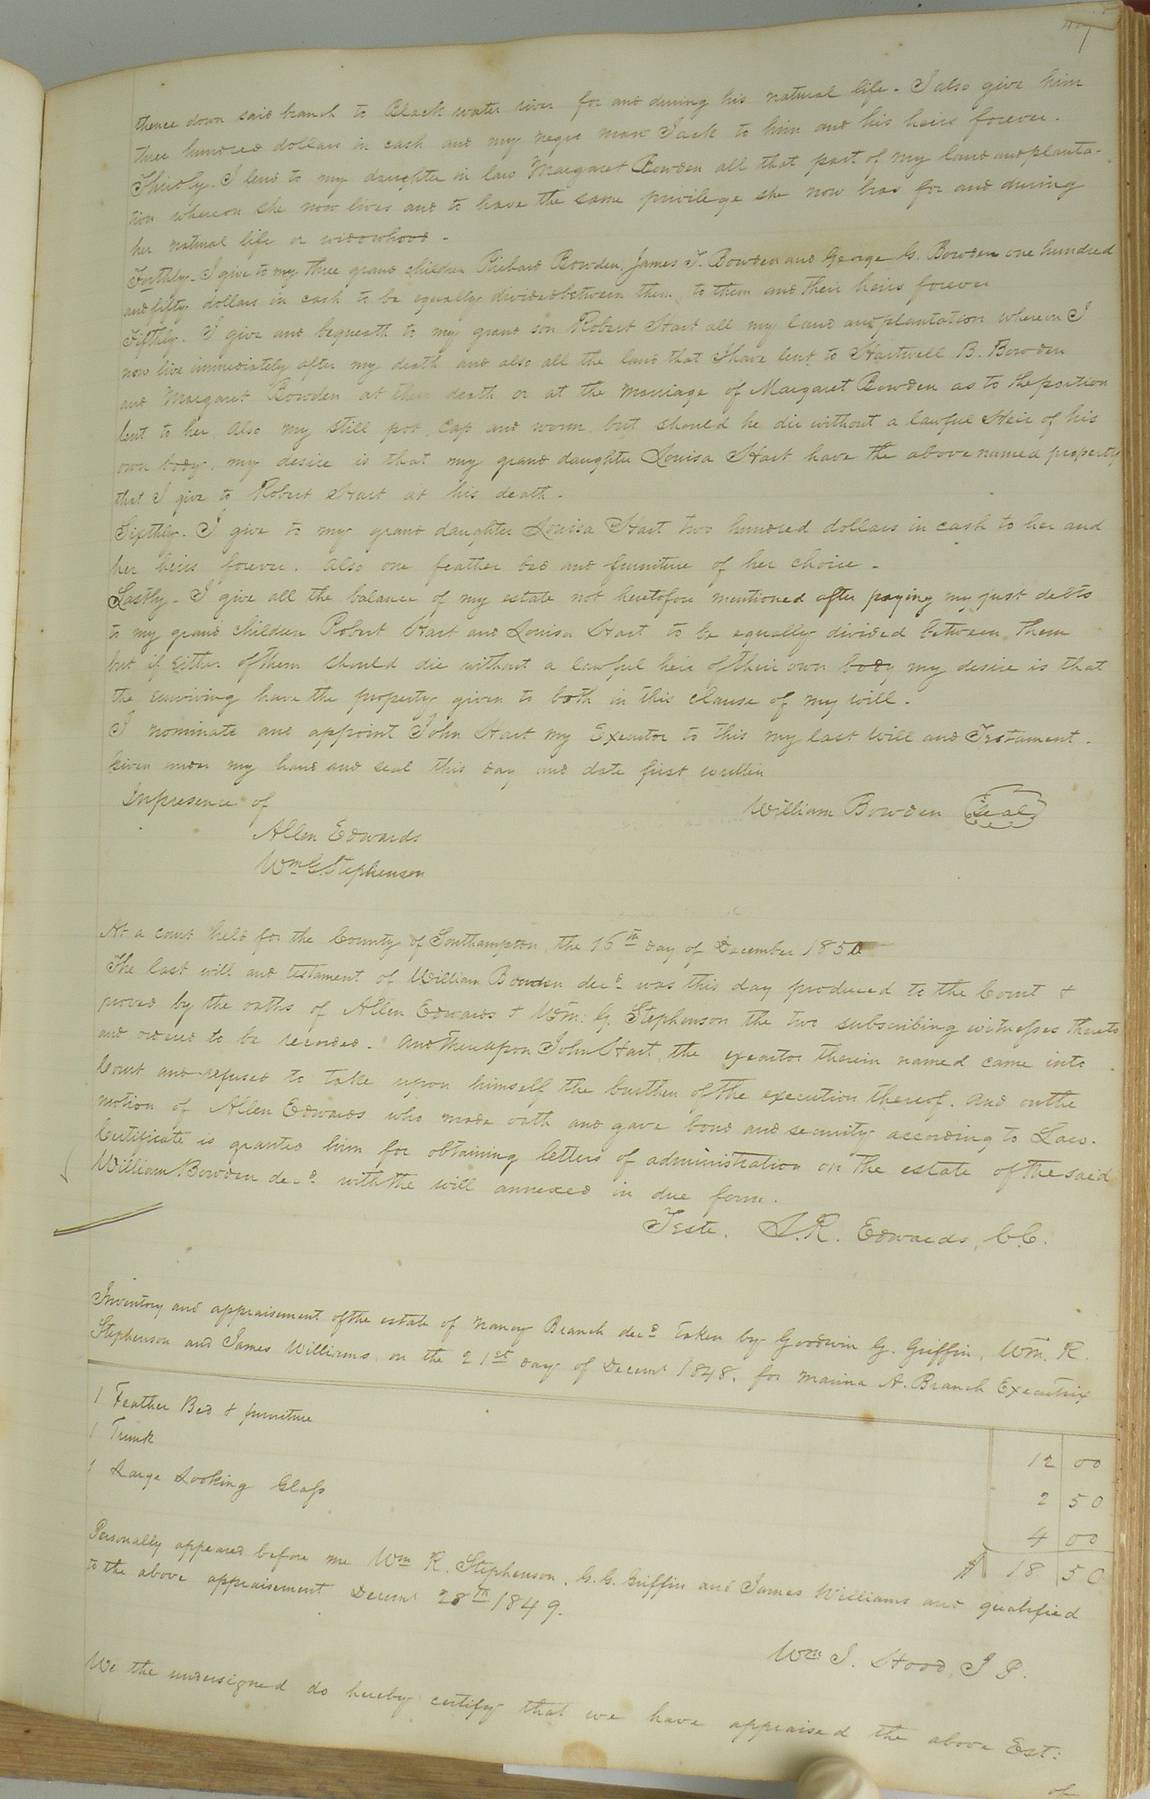 thence down said branch to Black water river for and during his natural life. I also give him
three hundred dollars in cash and my negro man Jack to him and his heirs forever.
Thirdly. I lend to my daughter in law Margaret Bowden all that part of my land and planta-
tion whereon she now lives and to have the same privilege she now has for and during
her natural life or widowhood.
Forthly. I give to my three grand children Richard Bowden, James T. Bowden and George G. Bowden one hundred
and fifty dollars in cash to be equally divided between them, to them and their heirs forever
Fifthly. I give and bequeath to my grand son Robert Hart all my land and plantation whereon I
now live immediately after my death and also all the land that I have lent to Hartwell B. Bowden
and Margaret Bowden at their death or at the marriage of Margaret Bowden as to the portion
lent to her. Also my still pot, cap and worm but should he die without a lawful Heir of his
own body, my desire is that my grand daughter Louisa Hart have the above named property
that I give to Robert Hart at his death.
Sixthly. I give to my grand daughter Louisa Hart two hundred dollars in cash to her and
her heirs forever. Also one feather bed and furniture of her choice.
Lastly. I give all the balance of my estate not heretofore mentioned after paying my just debts
to my grand children Robert Hart and Louisa Hart to be equally divided between them
but if either of them should die without a lawful heir of their own body my desire is that
the surviving have the property given to both in this clause of my will.
I nominate and appoint John Hart my Executor to this my last Will and Testament.
Given under my hand and seal this day and date first written
In presence of William Bowden Seal
Allen Edwards
Wm G. Stephenson
At a court held for the County of Southampton the 16th day of December 1850
The last will and testament of William Bowden decd was this day produced to the Court &
proved by the oaths of Allen Edwards & Wm. G. Stephenson the two subscribing witnesses thereto
and ordered to be recorded. And thereupon John Hart, the executor therein named came into
Court and refused to take upon himself the burthen of the execution thereof. And on the
motion of Allen Edwards who made oath and gave bond and security according to Law.
Certificate is granted him for obtaining letters of administration on the estate of the said
William Bowden decd with the will annexed in due form.
Teste. L.R. Edwards, C.C.
Inventory and appraisement of the estate of Nancy Branch decd taken by Goodwin G. Griffin, Wm. R.
Stephenson and James Williams on the 21st day of Decemr 1848. for Marina A. Branch Executrix
1 Feather Bed & furniture 12 00
1 Trunk 2 50
1 Large Looking Glass 4 00
$ 18 50
Personally appeared before me Wm R. Stephenson, G.G. Griffin and James Williams and qualified
to the above appraisement Decemr 28th 1849.
Wm J. Hood, J P.
We the undersigned do hereby certify that we have appraised the above Est:
of